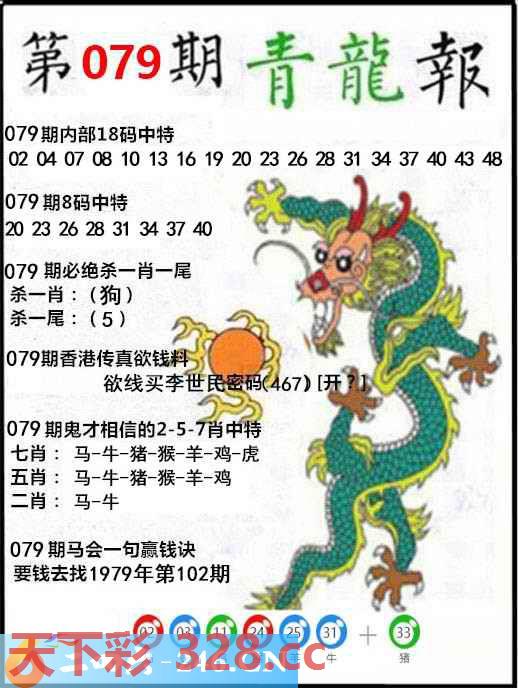 第079期青龍報
079期内部18码中特
02 04 07 08 10 13 16 19 20 23 26 28 31 34 37 40 43 48
079期8码中特
20 23 26 28 31 34 37 40
079期必绝杀一肖一尾
杀一肖：(狗)
杀一尾：(5)
079期香港传真欲钱料
欲线买李世民密码(467)[开?]
079期鬼才相信的2-5-7肖中特
七肖：马-牛-猪-猴-羊-鸡-虎
五肖：马-牛-猪-猴-羊-鸡
二肖：马-牛
079期马会一句赢钱诀
要钱去找1979年第102期
02 03 11 24 25 31 + 33
牛 猪
天下彩 328.cc